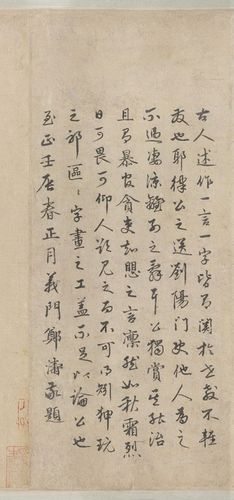 古人述作一言一字皆有關於世教不輕
發也耶律公之送劉陽門使他人為之
不過淒涼離別之辭耳公獨賞其能治
且有暴官貪吏知愧之言凛然如秋霜烈
日可畏可仰人欲見之而不可得矧狎玩
之邪區〻字畫之工蓋不足以論公也
至正壬辰春正月義門鄭濤敬題